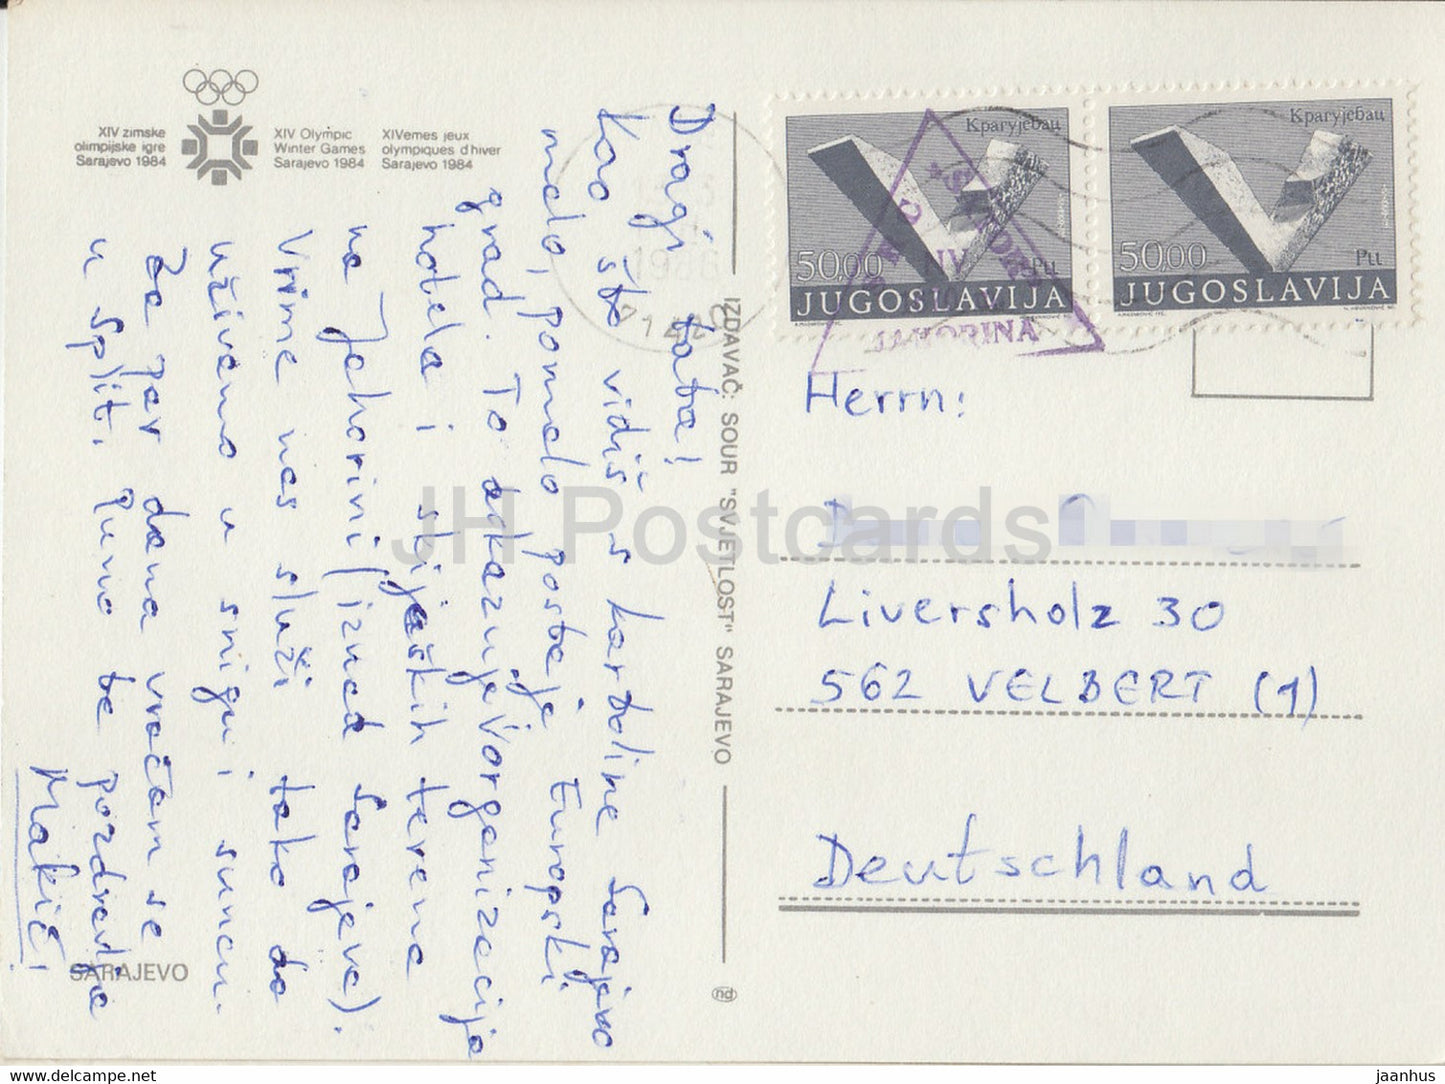 XIV zimske
olimpijske igre
Sarajevo 1984
XIV Olympic
Winter Games
Sarajevo 1984
XIVemes jeux
olympiques d'hiver
Sarajevo 1984
Dragi tata!
Kao što vidiš s kartoline Sarajevo
malo, pomalo postaje Europski
grad. To dokazuje organizacija
hotela i skijaških terena
na Jahorini (iznad Sarajeva).
Vrime nas služi tako da
uživamo u snigu i suncu.
Za par dana vraćam se
u Split. Puno te pozdravlja
Makić!
SARAJEVO
IZDAVAČ: SOUR "SVJETLOST" SARAJEVO
nd
Крагујевац
50,00
JUGOSLAVIJA
Крагујевац
50,00
JUGOSLAVIJA
JAHORINA
Herrn:
Liversholz 30
562 VELBERT (1)
Deutschland
JH Postcards
www.delcampe.net
jaanhus